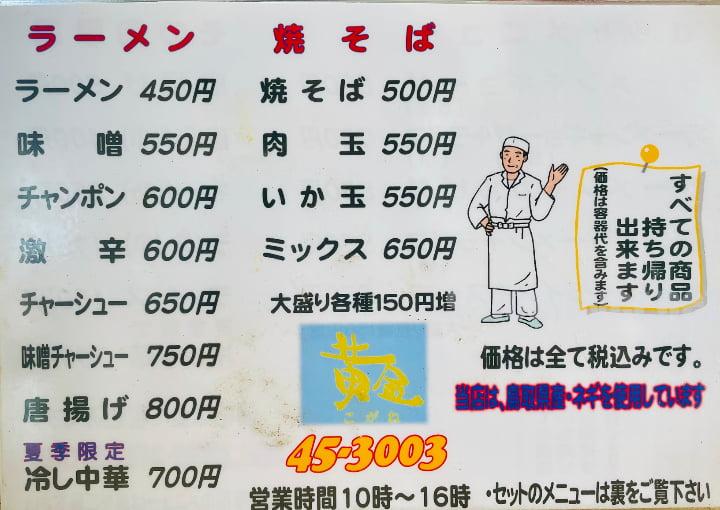 ラーメン
ラーメン 450円
味噌 550円
チャンポン 600円
激辛 600円
チャーシュー 650円
味噌チャーシュー 750円
唐揚げ 800円
夏季限定
冷し中華 700円
焼そば
焼そば 500円
肉玉 550円
いか玉 550円
ミックス 650円
大盛り各種150円増
黄金
こがね
45-3003
営業時間10時～16時
すべての商品
持ち帰り
出来ます
(価格は容器代を含みます)
価格は全て税込みです。
当店は、鳥取県産・ネギを使用しています
・セットのメニューは裏をご覧下さい